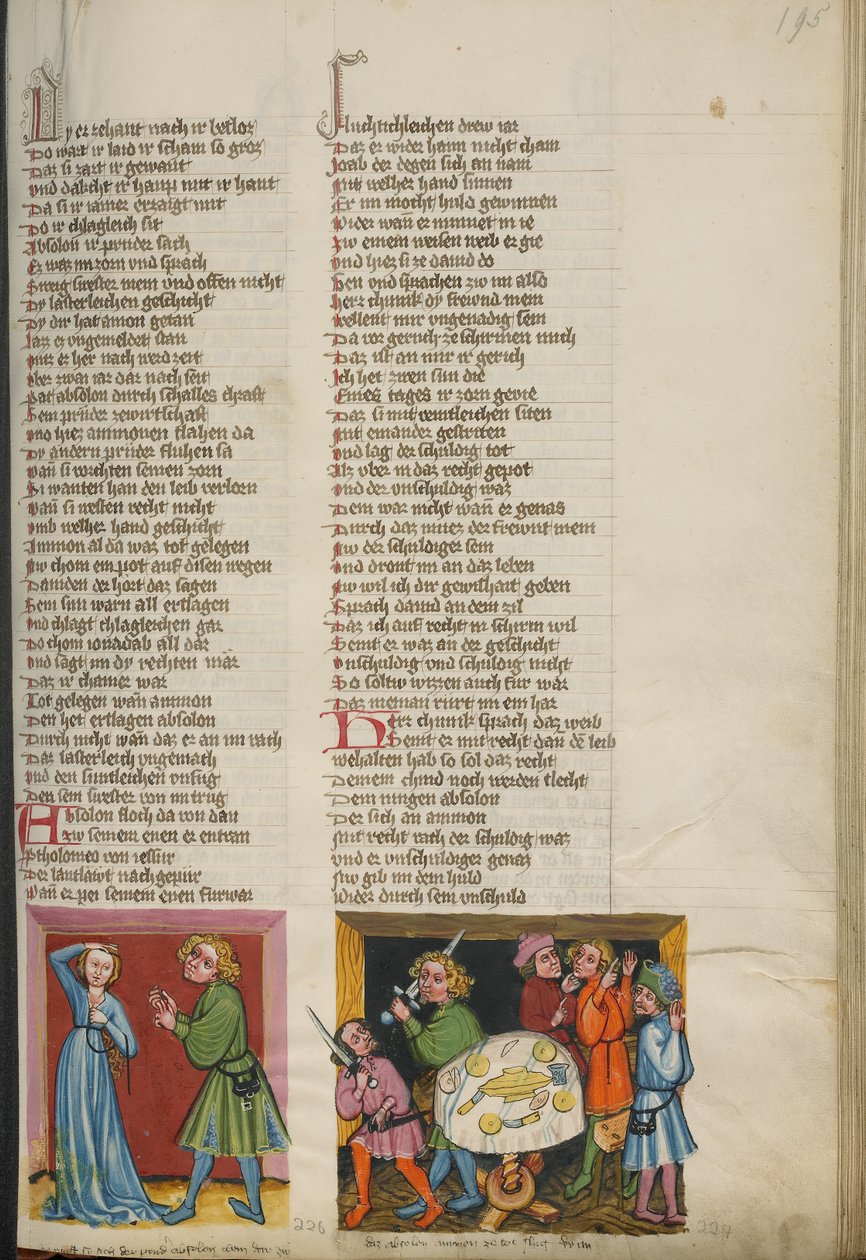 195
Dy er zehant nach ir verloz
Do wart ir laid ir scham so groz
Daz si zart ir gewant
Und dakcht ir haupt mit ir hant
Da si ir iamer erzaigt mit
Do ir chlagleich sit
Absolon ir prüder sach
Er waz in zorn vnd sprach
Sweig swester mein vnd offen nicht
Dy lasterleichen geschicht
Dy dir hat amon getan
Laz ez vngemeldet stan
Untz ez her nach werd zeit
Uber zwai iar dar nach seit
Pat absolon durch schalles chraft
Sein prüder ze wirtschaft
Und hiez ammonen slahen da
Dy andern prüder fluhen sa
Wann si vorchten seinen zorn
Si wanten han den leib verlorn
Wann si westen recht nicht
Umb welher hand geschicht
Ammon al da waz tot gelegen
Nw chom ein pot auf disen wegen
Dauiden der hort daz sagen
Sein sun warn all erslagen
Und chlagt chlagleichen gar
Do chom ionadab all dar
Und sagt im dy rechten mär
Daz ir chainer war
Tot gelegen wan ammon
Den het erslagen absolon
Durch nicht wan daz er an im rach
Daz lasterleich vngemach
Und den suntleichen vnfüg
Den sein swester von im trüg
Absolon floch da von dan
Zw seinem enen er entran
Ptholomeo von iessur
Der lantläwt nachgepur
Wan er pei seinem enen furwar
Fluchtichleichen drew iar
Daz er wider haim nicht cham
Joab der degen sich an nam
Mit welher hand sinnen
Er im mocht huld gewinnen
Wider wan er minnet in ie
Zw einem weisen weib er gie
Und hiez si ze dauid do
Gen vnd sprachen zw im also
Herr chunik dy frewnd mein
Wellent mir vngenadig sein
Da vor geruch ze schirmen mich
Daz ist an mir ir gerich
Ich het zwen sun die
Eines tages ir zorn gevie
Daz si mit veintleichen siten
Mit einander gestriten
Und lag der schuldig tot
Als vber in daz recht gepot
Und der vnschuldig waz
Dem war nicht wan er genas
Durch daz muez der frewnt mein
Nw der schuldiger sein
Und dront im an daz leben
Nw wil ich dir gewishait geben
Sprach dauid an dem zil
Daz ich auf recht in schirm wil
Seint er waz an der geschicht
Unschuldig vnd schuldig nicht
So soltw wizzen auch fur war
Daz nieman rurt im ein har
Herr chunik sprach daz weib
Seint er mit recht dan den leib
Wehalten hab so sol daz recht
Deinem chind noch werden slecht
Dem iungen absolon
Der sich an ammon
Mit recht rach der schuldig waz
Und er vnschuldiger genaz
Nw gib im dein huld
Wider durch sein vnschuld
226
227